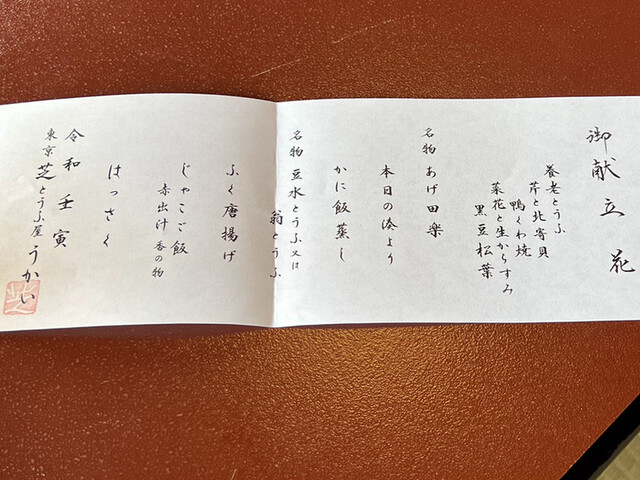 御献立 花
養老とうふ
芹と北寄貝
鴨くわ焼
菜花と生からすみ
黒豆松葉
名物 あげ田楽
本日の湊より
かに飯蒸し
名物 豆水とうふ 又は
翁とうふ
ふく唐揚げ
じゃこご飯
赤出汁 香の物
はっさく
令和 壬寅
東京 芝 とうふ屋 うかい
芝